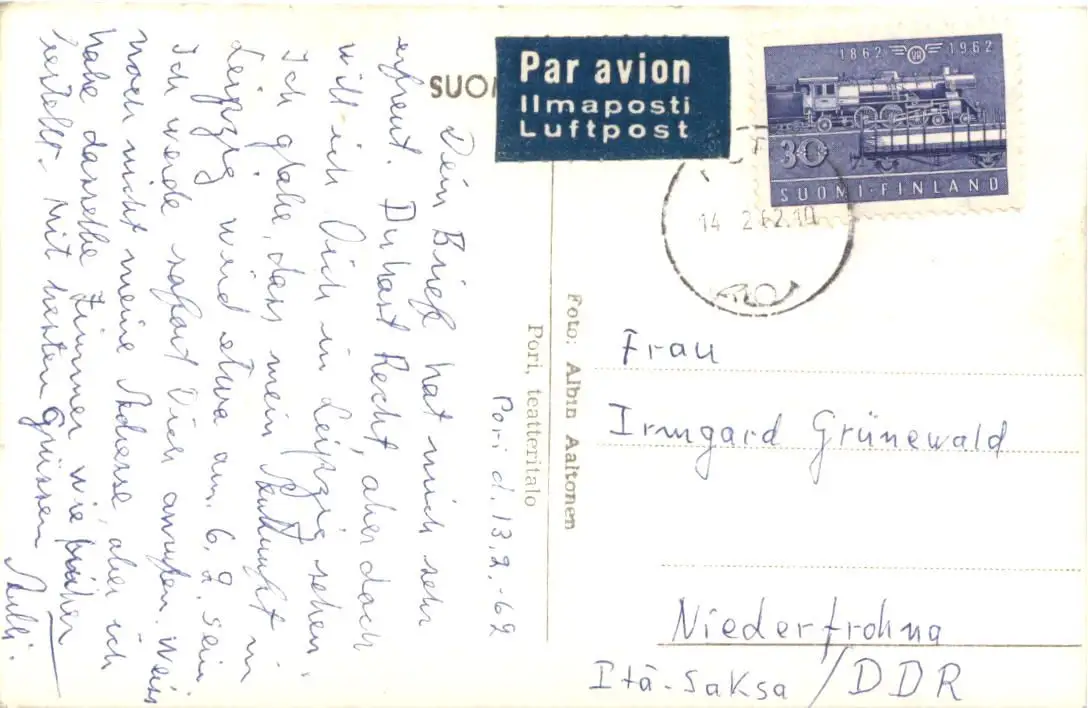 Pori d. 13.2.-62
Dein Brief hat mich sehr
erfreut. Du hast Recht, aber doch
will ich Dich in Leipzig sehen.
Ich glabe, dass mein Ankunft in
Leipzig wird etwa am. 6.2. sein
Ich werde sofort Dich anrufen. Weiss
noch nicht meine Adresse, aber ich
habe dasselbe Zimmer wie früher
bestellt. Mit besten Grüssen
SUO
Par avion
Ilmaposti
Luftpost
1862 VR 1962
30
SUOMI-FINLAND
14 2 62.10
Foto: Albin Aaltonen
Pori, teatteritalo
Frau
Irmgard Grünewald
Niederfrohna
Itä-Saksa / DDR